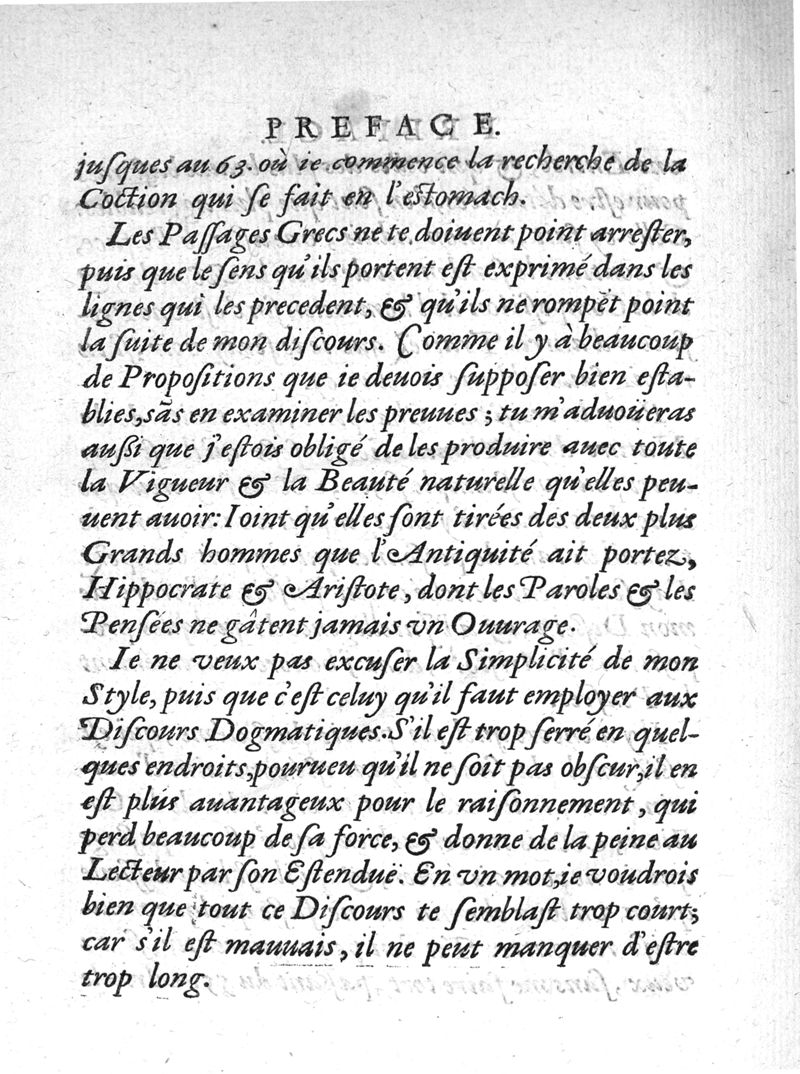 PREFACE.
juſques au 63. où ie commence la recherche de la
Coction qui ſe fait en l'eſtomach.
Les Paſſages Grecs ne te doiuent point arreſter,
puis que le ſens qu'ils portent eſt exprimé dans les
lignes qui les precedent, & qu'ils ne rompẽt point
la ſuite de mon diſcours. Comme il y à beaucoup
de Propoſitions que ie deuois ſuppoſer bien eſta-
blies, sãs en examiner les preuues ; tu m'aduoüeras
auſſi que j'eſtois obligé de les produire auec toute
la Vigueur & la Beauté naturelle qu'elles peu-
uent auoir: Ioint qu'elles ſont tirées des deux plus
Grands hommes que l'Antiquité ait portez,
Hippocrate & Ariſtote, dont les Paroles & les
Penſées ne gâtent jamais vn Ouurage.
Ie ne veux pas excuſer la Simplicité de mon
Style, puis que c'eſt celuy qu'il faut employer aux
Diſcours Dogmatiques. S'il eſt trop ſerré en quel-
ques endroits, pourueu qu'il ne ſoit pas obſcur, il en
eſt plus auantageux pour le raiſonnement, qui
perd beaucoup de ſa force, & donne de la peine au
Lecteur par ſon Eſtenduë. En vn mot, ie voudrois
bien que tout ce Diſcours te ſemblaſt trop court;
car s'il eſt mauuais, il ne peut manquer d'eſtre
trop long.